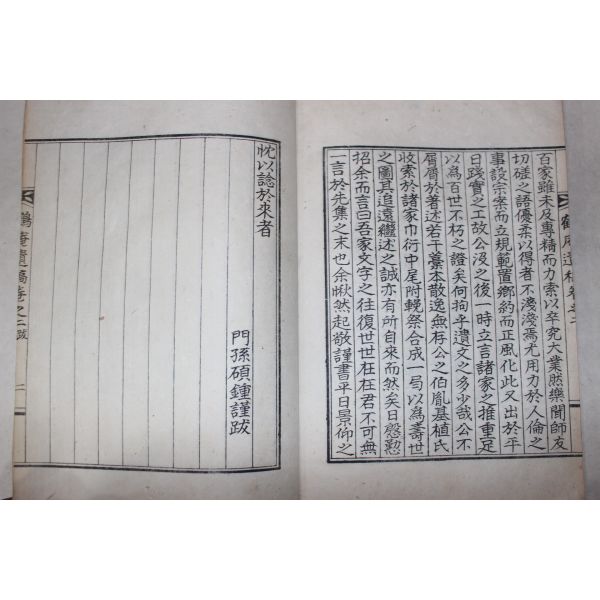 百家雖未及專精而力索以卒究大業然樂聞師友
切磋之語優柔以得者不淺淺焉尤用力於人倫之
事設宗案而立規範置鄕約而正風化此又出於平
日踐實之工故公沒之後一時立言諸家之推重足
以爲百世不朽之證矣何拘乎遺文之多少哉公不
屑屑於著述若干藁本散逸無存公之伯胤基植氏
收索於諸家巾衍中尾附輓祭合成一局以爲壽世
之圖其追遠繼述之誠亦有所自來而然矣日慇懃
招余而言曰吾家文字之往復世世在在君不可無
一言於先集之末也余愀然起敬謹書平日景仰之
忱以諗於來者
門孫碩鍾謹跋
鶴庵遺稿卷之二 跋
二
鶴庵遺稿卷之二